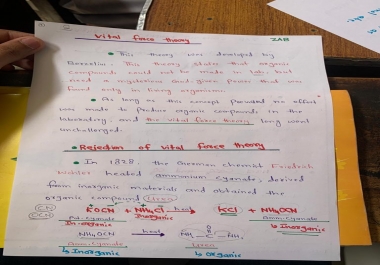 Vital force theory
• This theory was developed by
Berzelius. This theory states that organic
compounds could not be made in lab, but
need a mysterious and given power that was
found only in living organism.
• As long as this concept no effort
was made to produce organic compounds in the
laboratory, and the vital force theory long went
unchallenged.
• Rejection of vital force theory
• In 1828, the German chemist Friedrich
Wohler heated ammonium cyanate, derived
from inorganic materials and obtained the
organic compound (Urea)
CN
OCN
KOCN + NH4Cl heat → KCl + NH4OCN
Pot. cyanate Inorganic Amm. Cyanate
In-organic ↳ Inorganic
NH4OCN heat → NH2 - C - NH2
O
Amm: Cyanate Urea
↳ Inorganic ↳ Organic